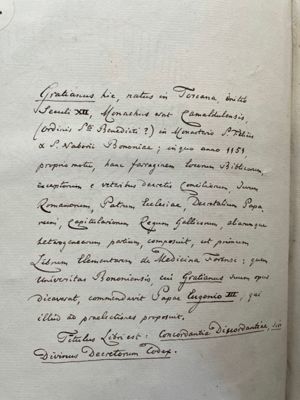 Gratianus hic, natus in Toscana, initio
Seculi XII, Monachus erat Camaldulensis,
(Ordinis Sti Benedicti?) in Monasterio S. Felicis
& S. Naboris Bononiae; in quo anno 1151
proprio motu, hanc farraginem locorum Biblicorum,
exceptorum e veteribus decretis Conciliorum, Summ
Romanorum, Patrum Eclesiae, Decretalium Papa-
rum, Capitulariorum Regum Gallicorum, aliarumque
heterogenearum partium, composuit, ut primum
Librum Elementorum de Medicina Forensi; quem
Universitas Bononiensis, cui Gratianus suum opus
dicaverat, commendavit Papae Eugenio III, qui
illud ad praelectiones proposuit.
Titulus Libri est: Concordantia Discordantiae, sive
Divinus Decretorum Codex.